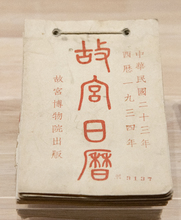 中華民國二十三年
西曆一九三四年
故宮日曆
故宮博物院出版